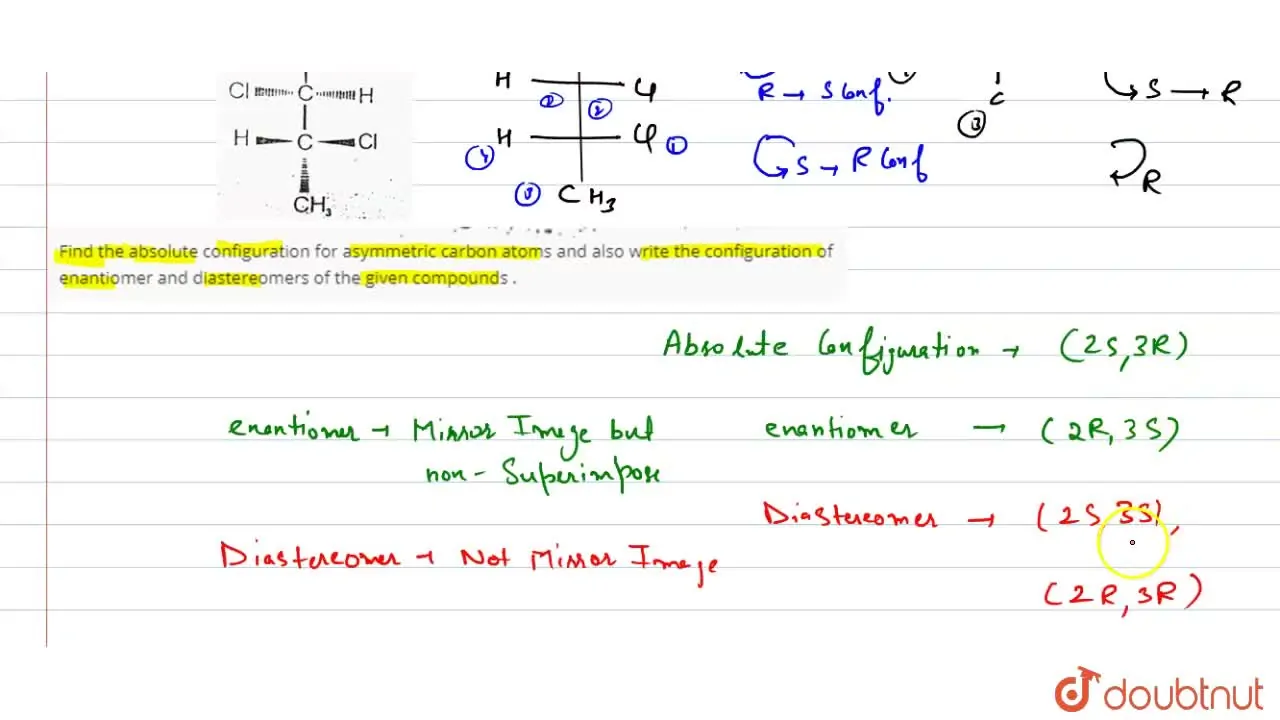 Cl C H
H Cl
R → S Conf.
C
③
S → R
H C Cl
② ②
H Cl ①
S → R Conf
R
④
CH₃
③ CH₃
Find the absolute configuration for asymmetric carbon atoms and also write the configuration of
enantiomer and diastereomers of the given compounds .
Absolute Configuration → (2S,3R)
enantiomer → Mirror Image but
non - Superimpose
enantiomer → (2R,3S)
Diastereomer → (2S,3S),
Diastereomer → Not Mirror Image
(2R,3R)
doubtnut